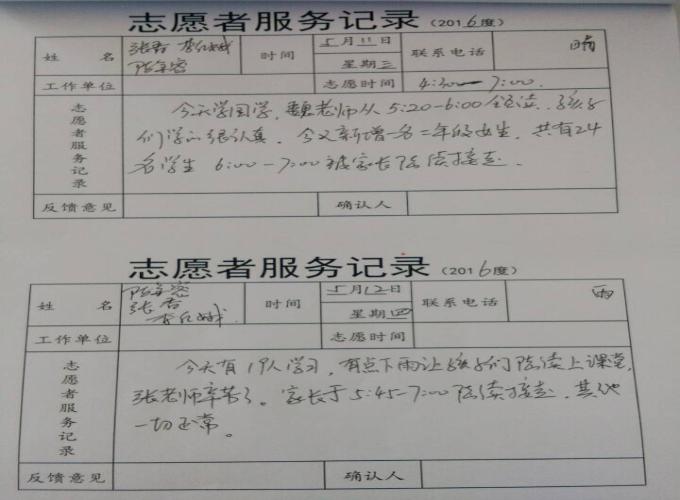 志愿者服务记录（2016度）
姓 名 张香 李红娥 时间 5月11日 联系电话 晴
陈年容 星期三
工作单位 志愿时间 4:30—7:00.
志愿者服务记录 今天学国学，魏老师从5:20-6:00全经读，孩子
们学的很认真。今又新增一名二年级女生，共有24
名学生 6:00-7:00被家长陆续接走.
反馈意见 确认人
志愿者服务记录（2016度）
姓 名 陈年容 时间 5月12日 联系电话 雨
张香
李红娥. 星期四
工作单位 志愿时间
志愿者服务记录 今天有19人学习，有点下雨让孩子们陆续上课堂，
张老师辛苦了。家长于5:45-7:00陆续接走，其他
一切正常。
反馈意见 确认人